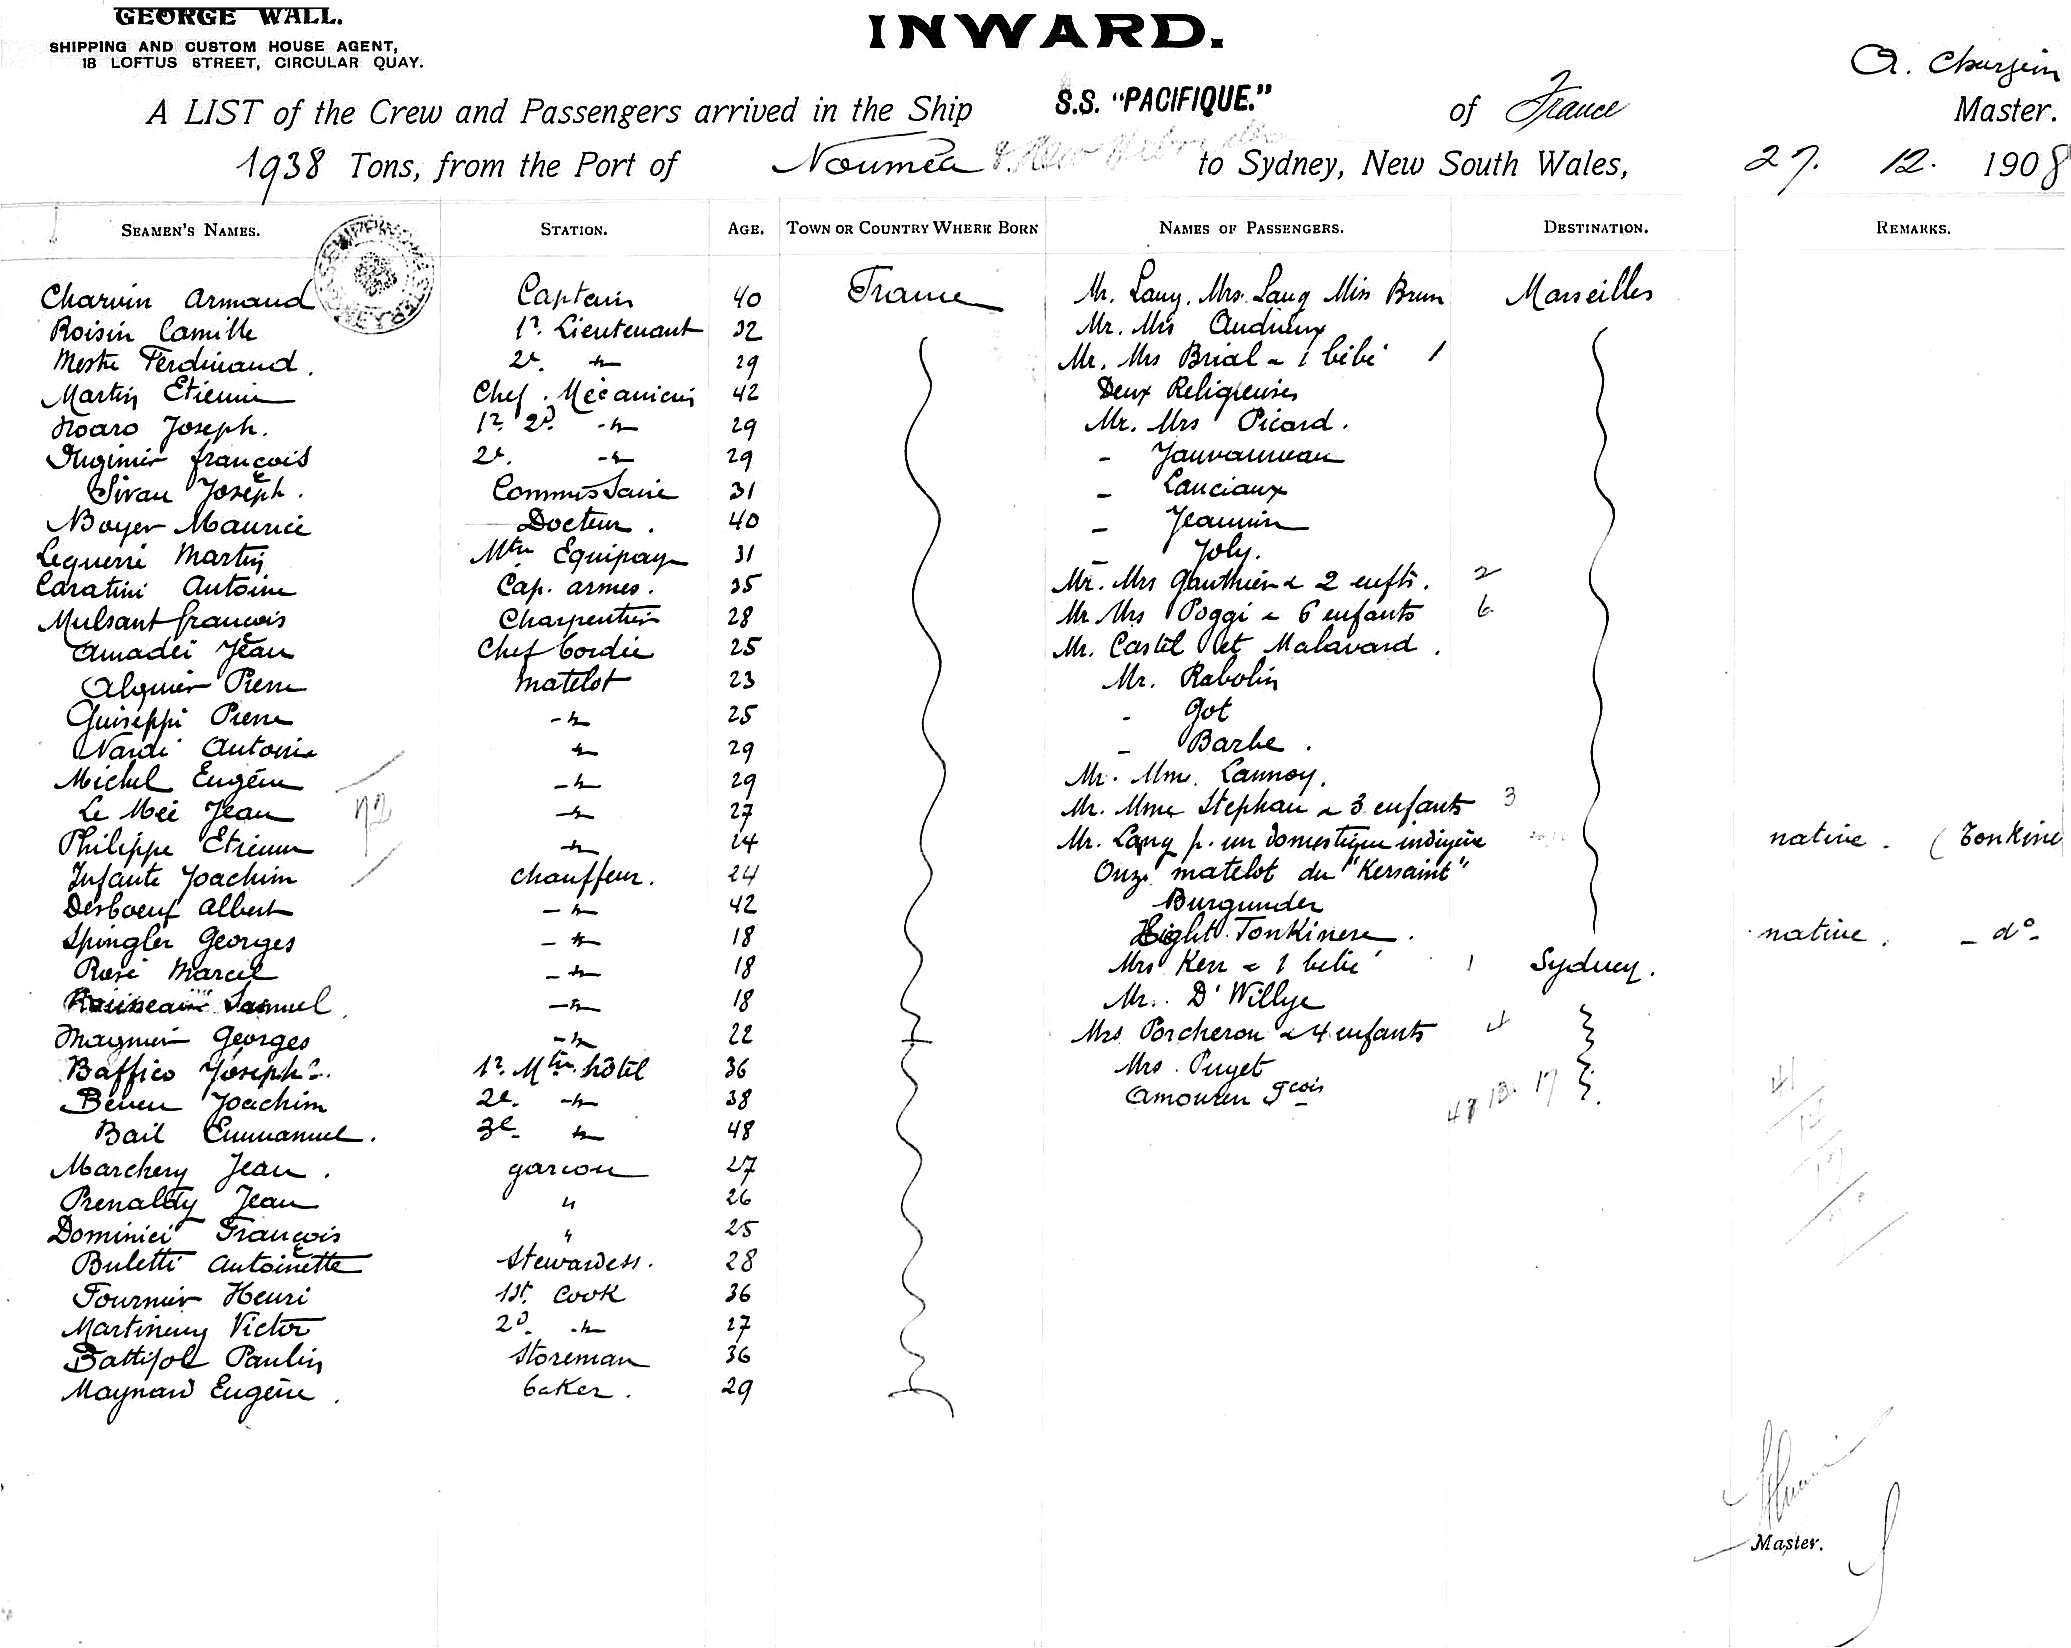 GEORGE WALL.
SHIPPING AND CUSTOM HOUSE AGENT,
18 LOFTUS STREET, CIRCULAR QUAY.
INWARD.
A.
A LIST of the Crew and Passengers arrived in the Ship S.S. "PACIFIQUE." of France Master.
1938 Tons, from the Port of Nouméa & New to Sydney, New South Wales, 27. 12. 1908
SEAMEN'S NAMES. STATION. AGE. TOWN OR COUNTRY WHERE BORN NAMES OF PASSENGERS. DESTINATION. REMARKS.
Charvin Armand Captain 40 France Mr. Lang. Mrs. Lang Miss Brun Marseilles
Roisin Camille 1r. Lieutenant 32 Mr. Mrs
Ferdinand. 2e. -"- 29 Mr. Mrs Brial & 1 bébé 1
Martin Etienne Chef. Mécanicien 42 Deux Religieuses
Joseph. 1r 2d. -"- 29 Mr. Mrs Picard.
françois 2e. -"- 29 -
Sivan Joseph. Commissaire 31 - Lanciaux
Boyer Maurice Docteur. 40 - Jeannin
Martin Mtre Equipage 31 - Joly.
Caratini Antoine Cap. armes. 35 Mr. Mrs Gauthier & 2 enfts. 2
Mulsant françois Charpentier 28 Mr Mrs Poggi & 6 enfants 6
Amadéi Jean Chef 25 Mr. Castel et Malavard.
Alquier Pierre matelot 23 Mr. Rabolin
Guiseppi Pierre -"- 25 - Got
Nardi Antoine -"- 29 - Barbe.
Michel Eugène -"- 29 Mr. Mme. Lannoy.
Le Mée Jean -"- 27 Mr. Mme Stephan & 3 enfants 3
Philippe Etienne -"- 24 Mr. Lang p. un domestique indigène native. (Tonkine
Infante Joachim chauffeur. 24 Onze matelot du "Kersaint"
Desboeuf Albert -"- 42 Burgunder
Spingler Georges -"- 18 Eight Tonkinese. native. - do-
Rosé Marcel -"- 18 Mrs Kerr & 1 bébé 1 Sydney.
Samuel -"- 18 Mr. D'Willye
Georges -"- 22 Mrs Porcheron & 4 enfants 4
Baffico Joseph 1r. Mtre hôtel 36 Mrs. Puget
Joachim 2e. -"- 38 Fcois
Bail Emmanuel. 3e. -"- 48
Marchery Jean. garcon 27
Prenaldy Jean " 26
Dominici François " 25
Buletti Antoinette Stewardess. 28
Fournier Henri 1st. Cook 36
Victor 2d. -"- 27
Battifol Paulin Storeman 36
Maynard Eugène. baker. 29
Master.